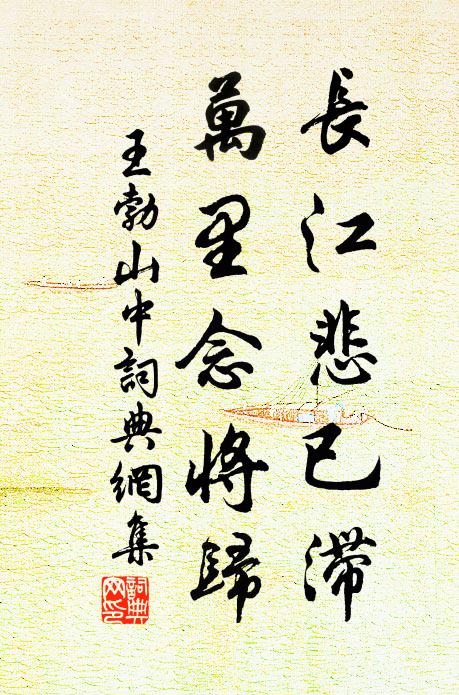 長江悲已滯
萬里念將歸
王勃山中詞典網集
詞典网印